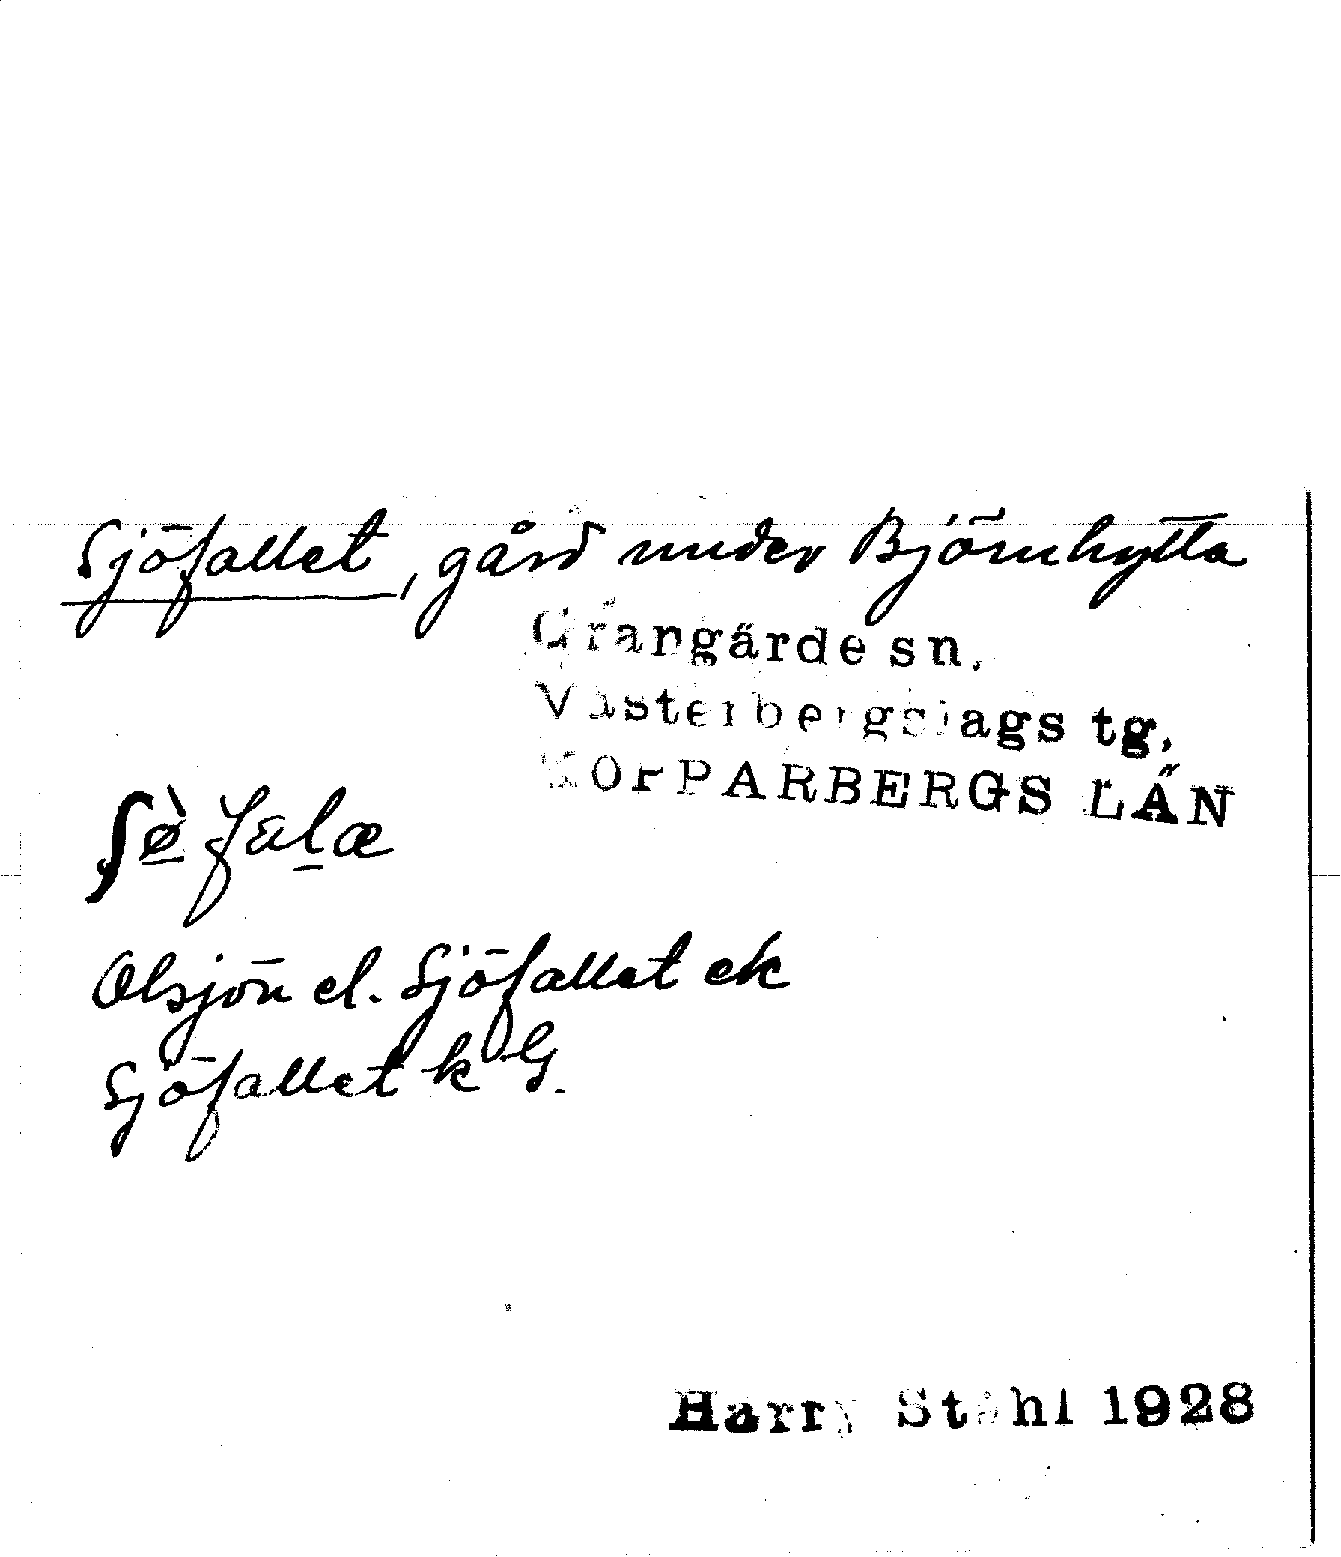 Sjöfallet, gård under Björnhytta
Grangärde sn.
Västerbergslags tg.
KOPPARBERGS LÄN
Olsjön el. Sjöfallet ek
Sjöfallet k G.
Harry Ståhl 1928